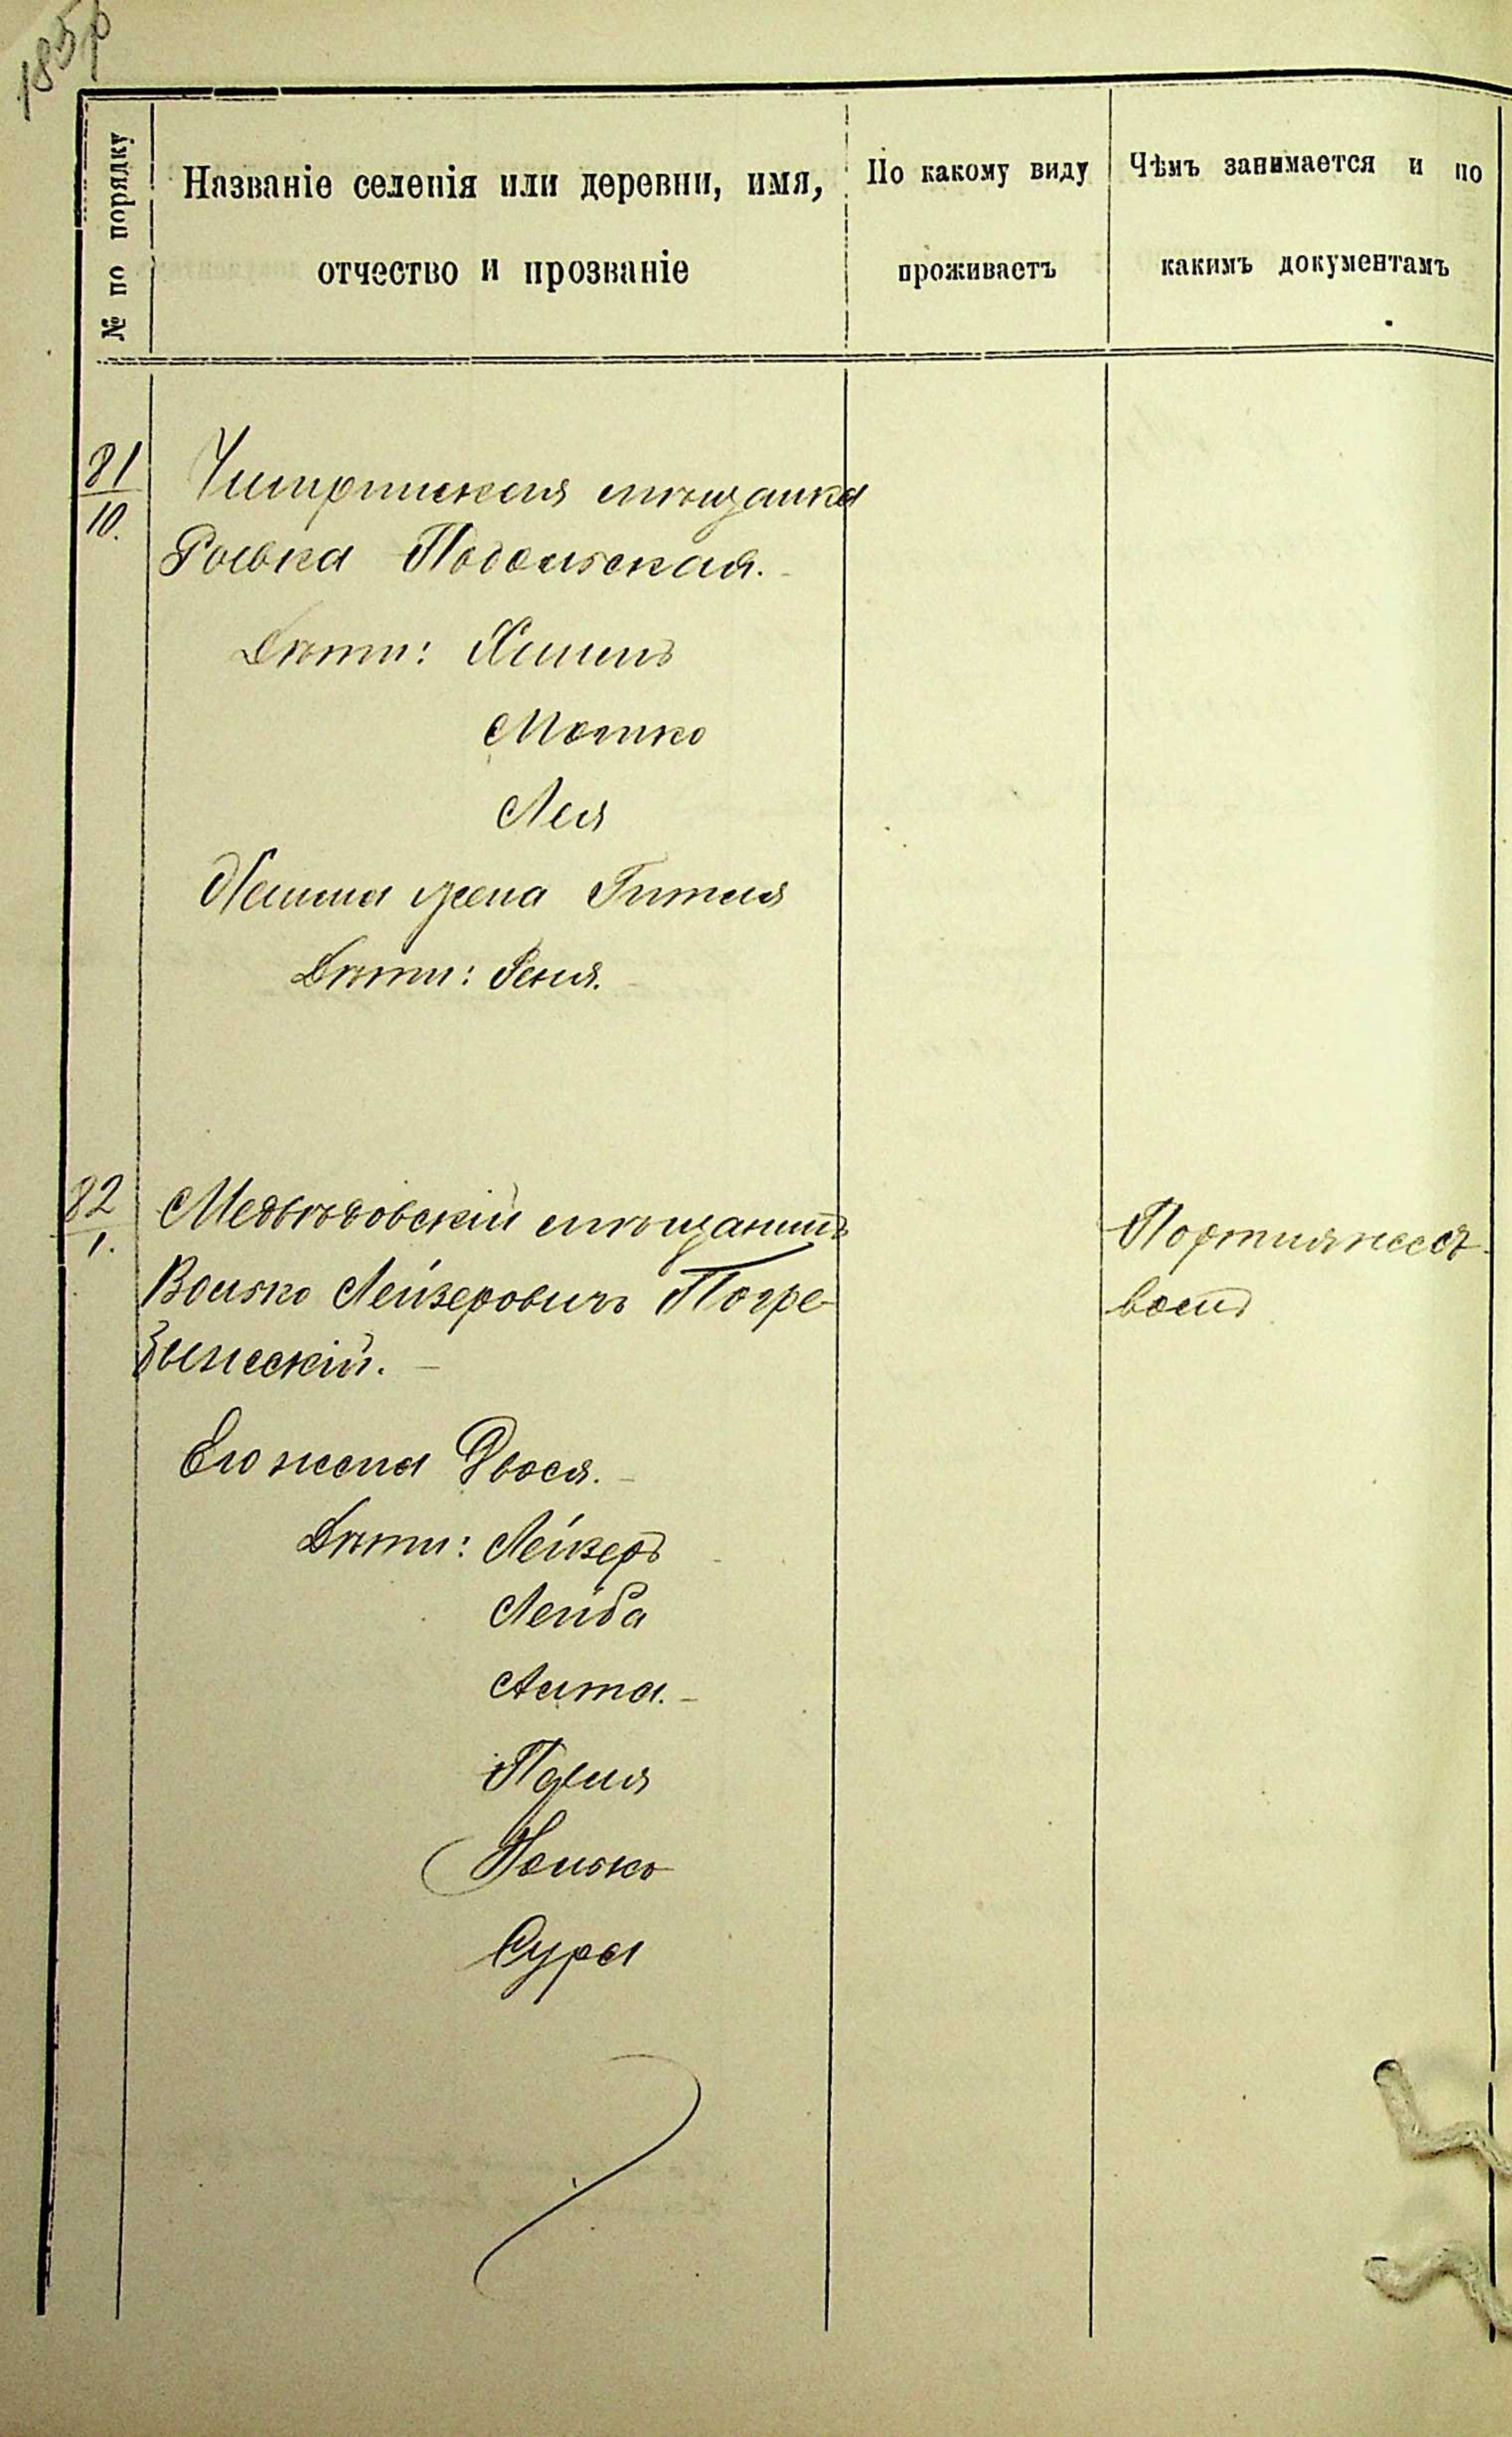 185 р
№ по порядку
Названіе селенія или деревни, имя,
отчество и прозваніе
По какому виду
проживаетъ
Чѣмъ занимается и по
какимъ документамъ
81/10.
Чигиринская мѣщанка
Ройвка Подольская.
Дѣти: Хаимъ
Мошко
Лея
Хаима жена Гитля
Дѣти: Геня.
82/1.
Медвѣдовскій мѣщанинъ
Волько Лейзеровичъ Погре-
бынскій.
Его жена Двося.
Дѣти: Лейзеръ
Лейба
Алта.
Перля
Ицько
Сура
Портняжест-
вомъ